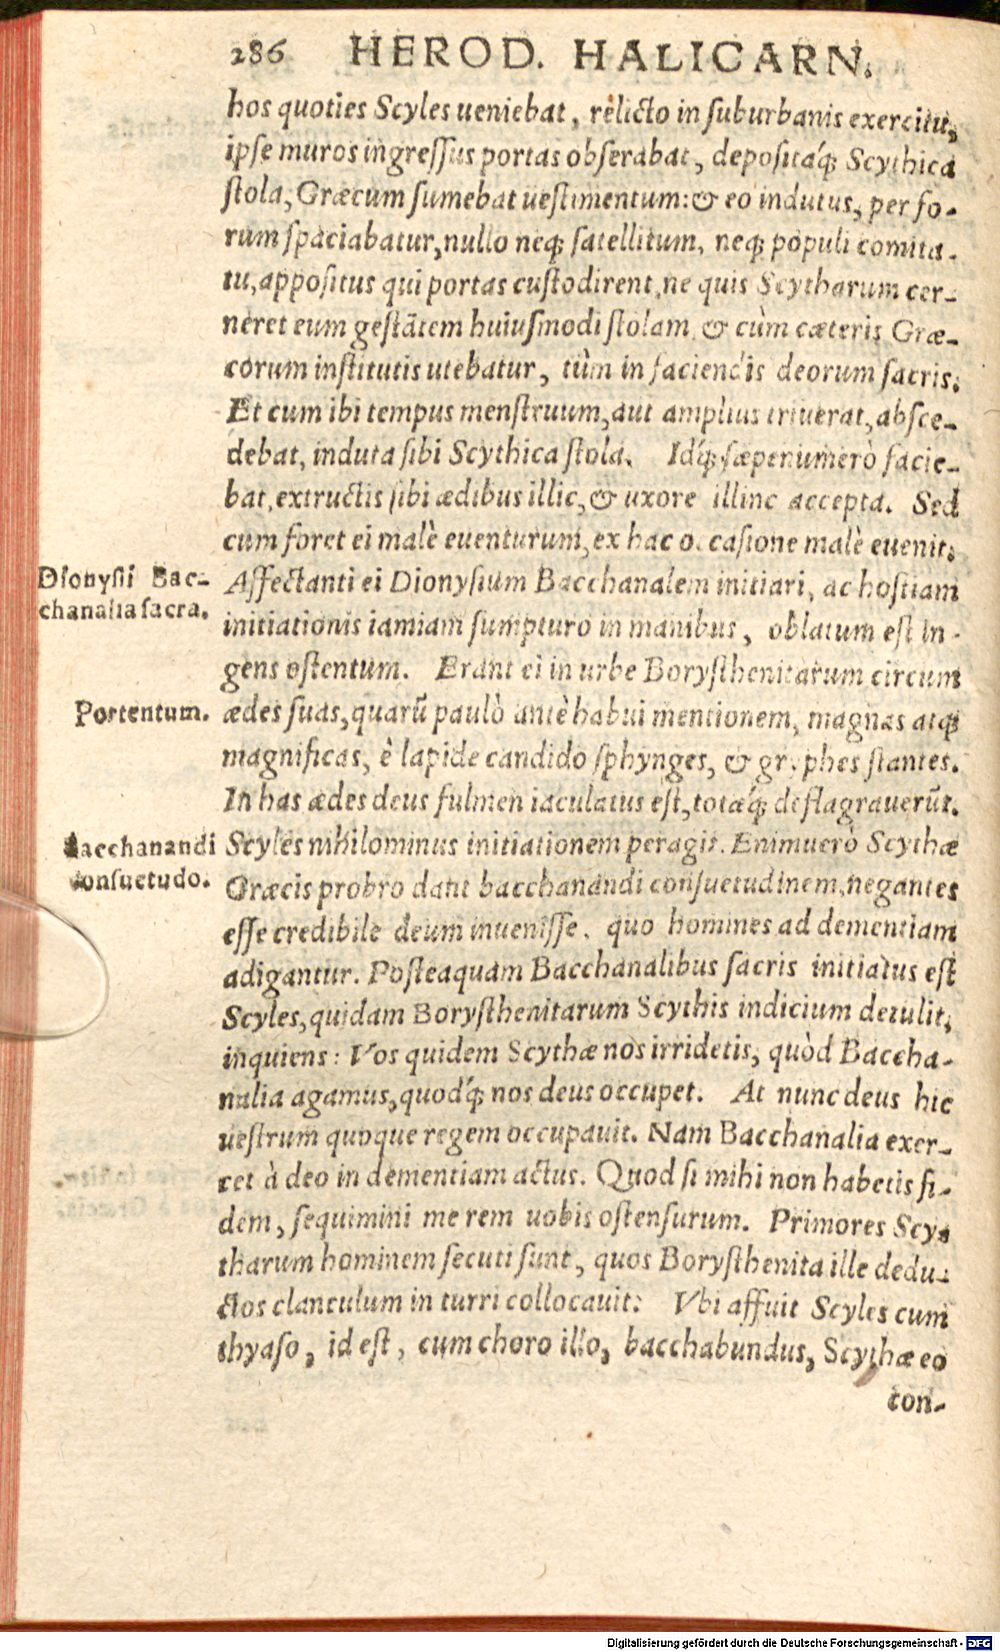 286 HEROD. HALICARN.
hos quoties Scyles ueniebat, relicto in ſuburbanis exercitu,
ipſe muros ingreſſus portas obſerabat, depoſitaq́; Scythica
ſtola, Græcum ſumebat ueſtimentum: & eo indutus, per fo-
rum ſpaciabatur, nullo neq; ſatellitum, neq; populi comita-
tu, appoſitus qui portas cuſtodirent, ne quis Scytharum cer-
neret eum geſtãtem huiuſmodi ſtolam, & cùm cæteris Græ-
corum inſtitutis utebatur, tùm in faciendis deorum ſacris.
Et cum ibi tempus menſtruum, aut amplius triuerat, abſce-
debat, induta ſibi Scythica ſtola. Idq́; ſæpenumerò facie-
bat, extructis ſibi ædibus illic, & uxore illinc accepta. Sed
cum foret ei malè euenturum, ex hac occaſione malè euenit.
Dionyſii Bac-
chanalia ſacra.
Affectanti ei Dionyſium Bacchanalem initiari, ac hoſtiam
initiationis iamiam ſumpturo in manibus, oblatum eſt in-
gens oſtentum. Erant ei in urbe Boryſthenitarum circum
Portentum.
ædes ſuas, quarũ paulò antè habui mentionem, magnas atq;
magnificas, è lapide candido ſphynges, & gryphes ſtantes.
In has ædes deus fulmen iaculatus eſt, totæq́; deflagrauerũt.
Bacchanandi
conſuetudo.
Scyles nihilominus initiationem peragit. Enimuerò Scythæ
Græcis probro dant bacchanandi conſuetudinem, negantes
eſſe credibile deum inueniſſe, quo homines ad dementiam
adigantur. Poſteaquam Bacchanalibus ſacris initiatus eſt
Scyles, quidam Boryſthenitarum Scythis indicium detulit,
inquiens: Vos quidem Scythæ nos irridetis, quòd Baccha-
nalia agamus, quodq́; nos deus occupet. At nunc deus hic
ueſtrum quoque regem occupauit. Nam Bacchanalia exer-
cet à deo in dementiam actus. Quod ſi mihi non habetis fi-
dem, ſequimini me rem uobis oſtenſurum. Primores Scy-
tharum hominem ſecuti ſunt, quos Boryſthenita ille dedu-
ctos clanculum in turri collocauit: Vbi affuit Scyles cum
thyaſo, id eſt, cum choro illo, bacchabundus, Scythæ eo
con-
Digitalisierung gefördert durch die Deutsche Forschungsgemeinschaft - DFG